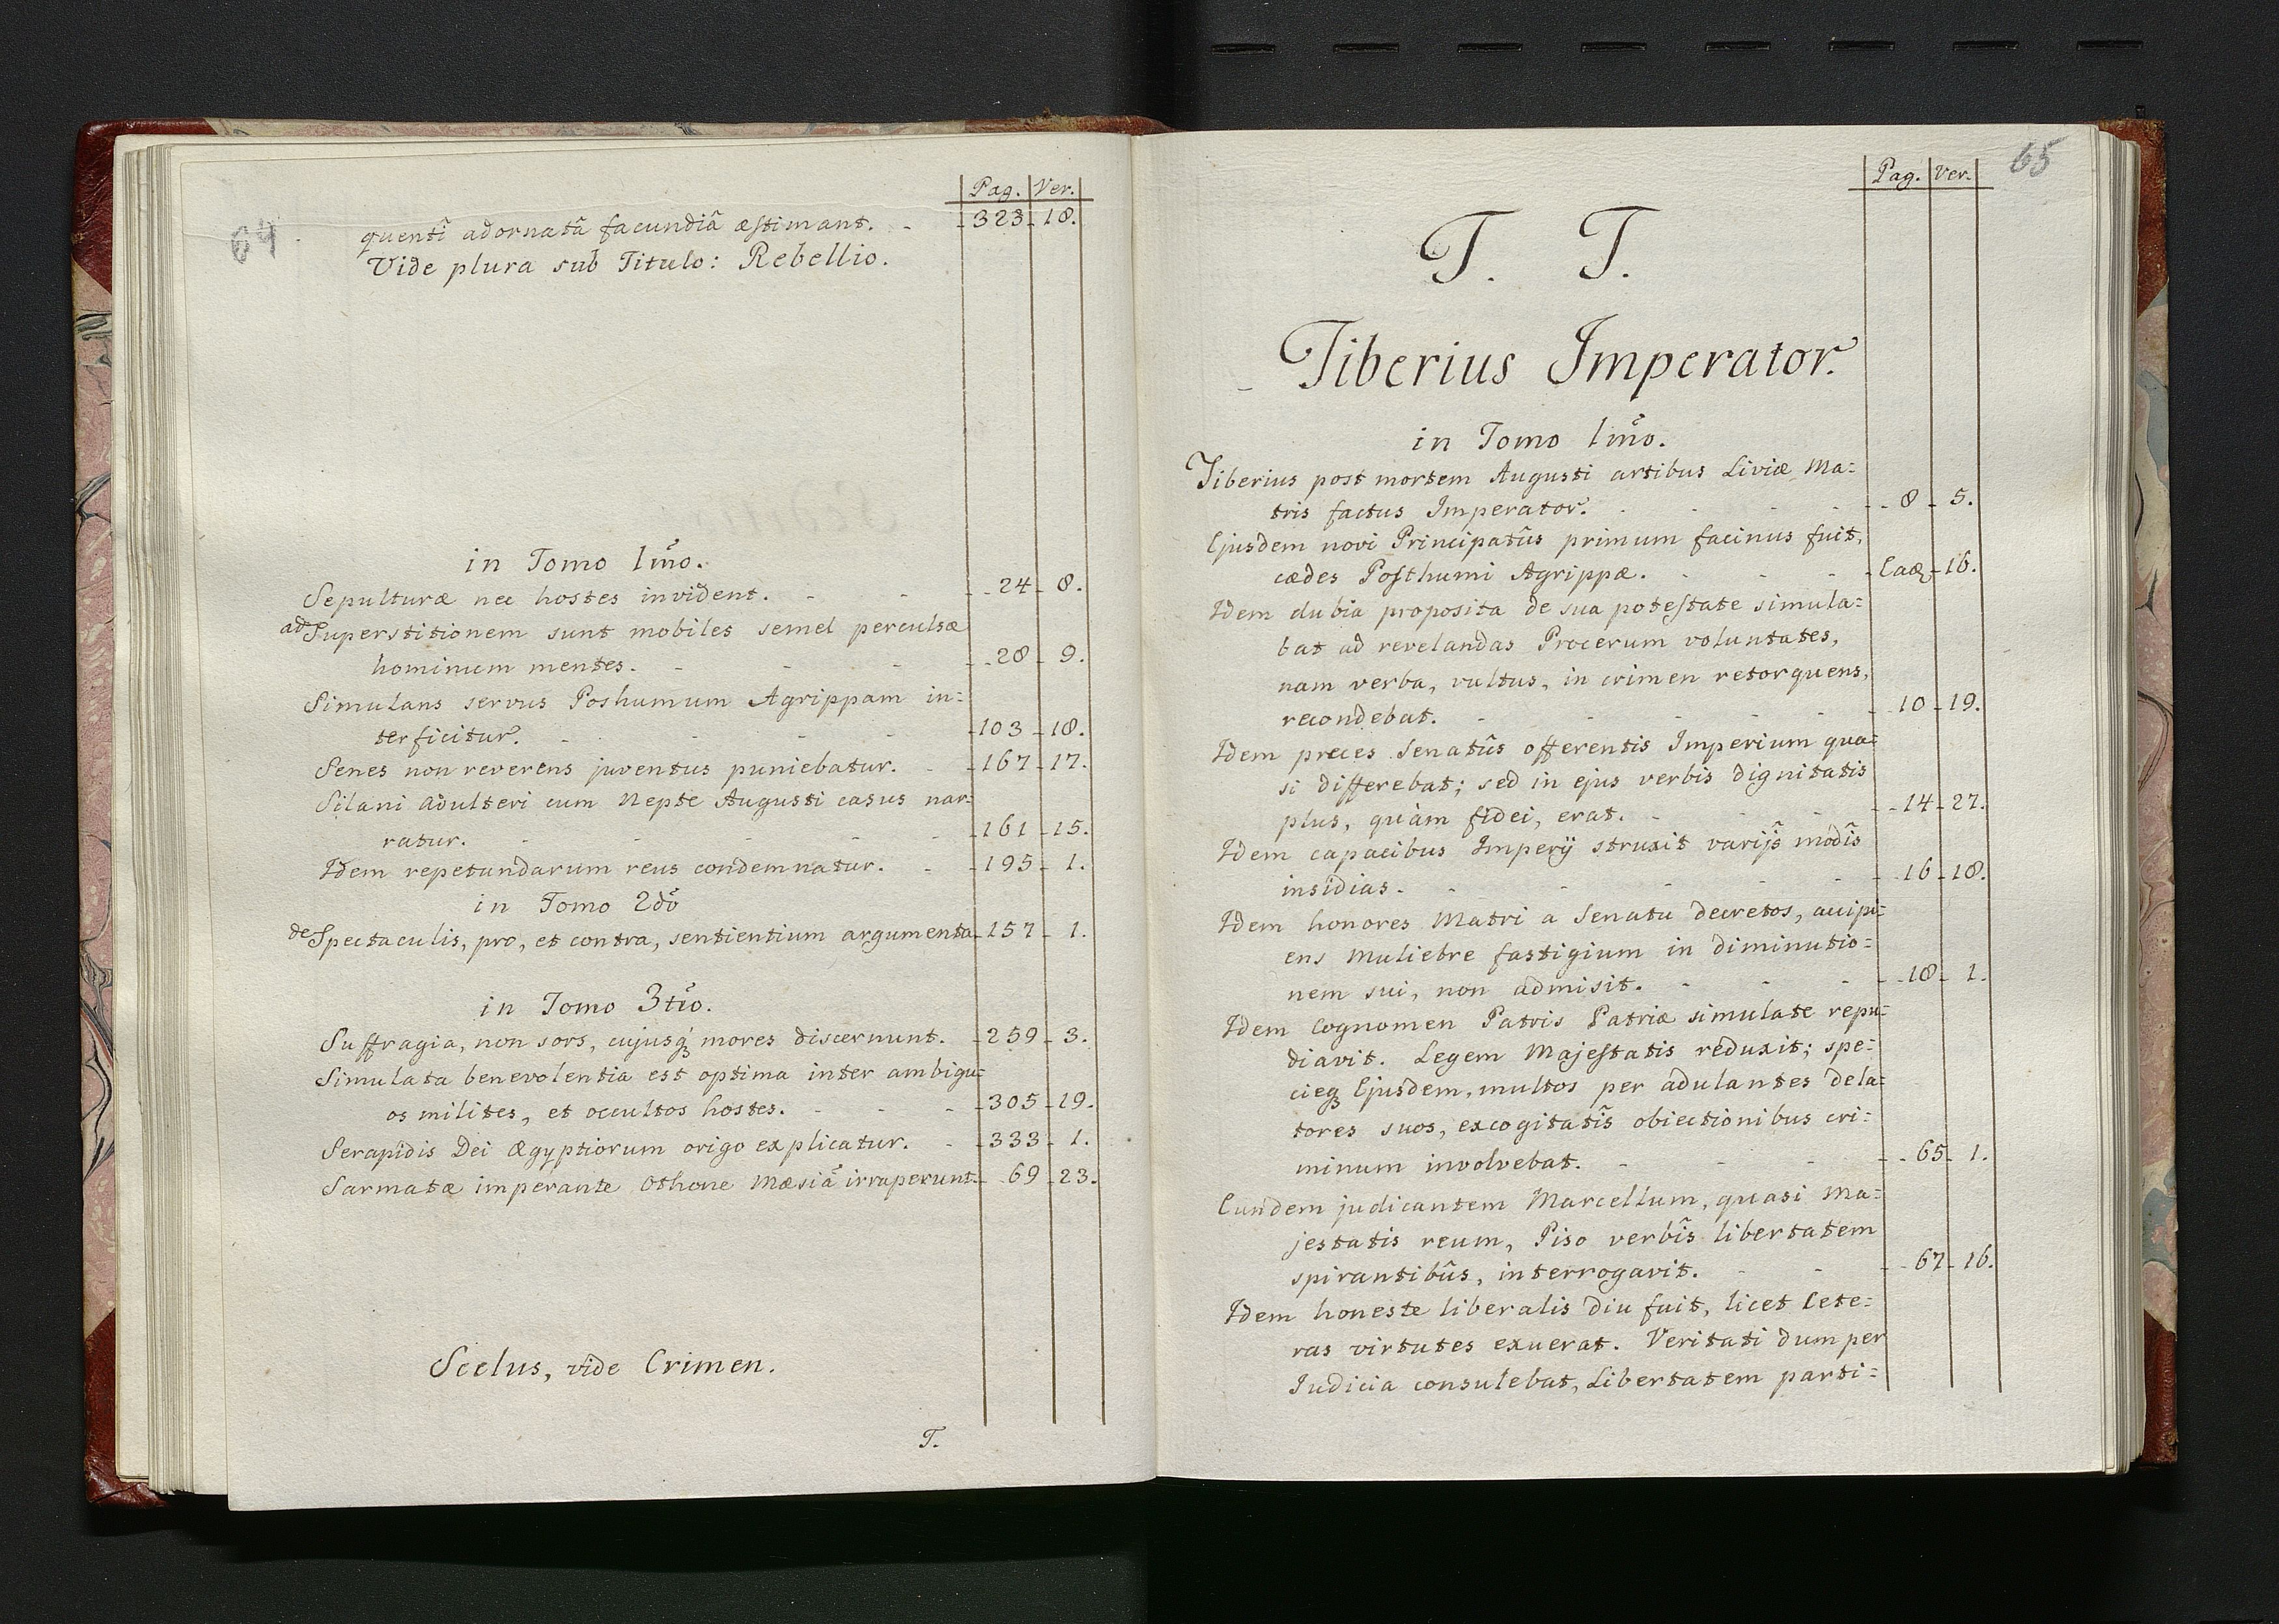 64
Pag. Ver.
quentî adornatâ facundiâ æstimant. - 323 - 18.
Vide plura sub Titulo: Rebellio.
in Tomo 1mo.
Sepulturæ nec hostes invident. - - - 24 - 8.
ad Superstitionem sunt mobiles semel perculsæ
hominum mentes. - - - 28 - 9.
Simulans servus Poshumum Agrippam in=
terficitur. - - - - 103 - 18.
Senes non reverens juventus puniebatur. - - 167 - 17.
Silani Adulteri cum Nepte Augusti casus nar=
ratur. - - - - 161 - 15.
Idem repetundarum reus condemnatur. - - 195 - 1.
in Tomo 2do
de Spectaculis, pro, et contra, sentientium argumenta - 157 - 1.
in Tomo 3tio.
Suffragia, non sors, cujusq; mores discernunt. - 259 - 3.
Simulata benevolentia est optima inter ambigu=
os milites, et occultos hostes. - - - 305 - 19.
Serapidis Dei Ægyptiorum origo explicatur. - - 333 - 1.
Sarmatæ imperante Othone Mæsiâ irruperunt. - 69 - 23.
Scelus, vide Crimen.
T.
65
Pag. Ver.
T. T.
Tiberius Imperator.
in Tomo 1mo.
Tiberius post mortem Augusti artibus Liviæ Ma=
tris factus Imperator. - - - 8 - 5.
Ejusdem novi Principatûs primum facinus fuit,
cædes Posthumi Agrippæ. - - - Eaď - 16.
Idem dubia proposita de sua potestate simula=
bat ad revelandas Procerum voluntates,
nam verba, vultus, in crimen retorquens,
recondebat. - - - - 10 - 19.
Idem preces Senatûs offerentis Imperium qua=
si differebat; sed in ejus verbis dignitatis
plus, quàm fidei, erat. - - - 14 - 27.
Idem capacibus Imperij struxit varijs modîs
insidias. - - - - - 16 - 18.
Idem honores Matri a Senatu decretos, accipi=
ens Muliebre fastigium in diminutio=
nem sui, non admisit. - - - 18 - 1.
Idem Cognomen Patris Patriæ simulate repu=
diavit. Legem Majestatis reduxit; spe=
cieq; Ejusdem, multos per adulantes dela=
tores suos, excogitatîs obiectionibus cri=
minum involvebat. - - - 65 - 1.
Eundem judicantem Marcellum, quasi Ma=
jestatis reum, Piso verbîs libertatem
spirantibûs, interrogavit. - - - 67 - 16.
Idem honeste liberalis diu fuit, licet Cete=
ras virtutes exuerat. Veritati dum per
Iudicia consulebat, Libertatem parti=